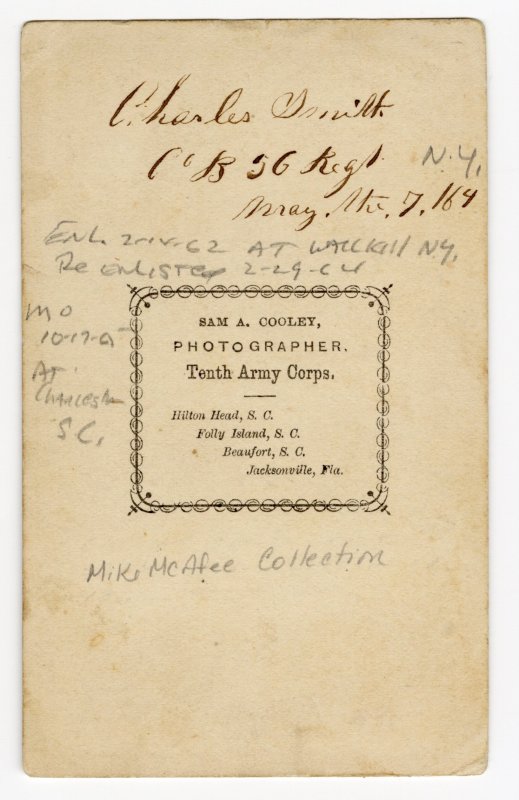 Charles Smith
Co B 56 Regt N.Y.
May the 7, 164
ENL. 2-14-62 AT WALLKILL NY.
RE ENLISTED 2-29-64
MO
10-17-65
AT
Charleston
S.C.
SAM A. COOLEY,
PHOTOGRAPHER,
Tenth Army Corps.
Hilton Head, S. C.
Folly Island, S. C.
Beaufort, S. C.
Jacksonville, Fla.
Mike McAfee Collection